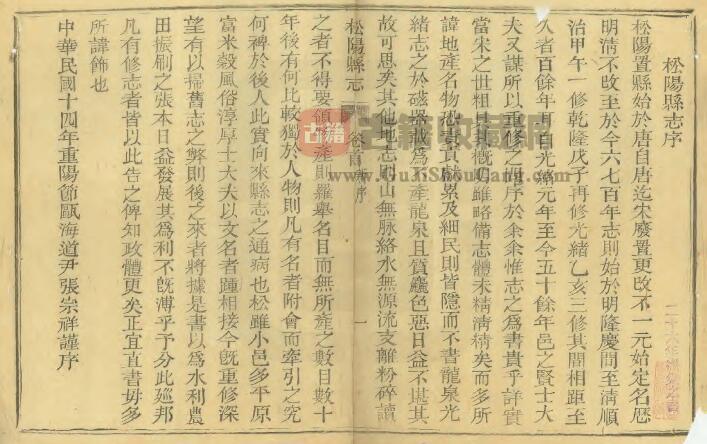 松陽縣志序
松陽置縣始於唐自唐迄宋廢置更改不一元始定名歷
明清不改至於今六七百年志則始於明隆慶間至清順
治甲午一修乾隆戊子再修光緒乙亥三修其間相距至
久者百餘年再自光緒元年至今五十餘年邑之賢士大
夫又謀所以重修之問序於余余惟志之為書貴乎詳實
當宋之世粗具其概明雖略備志體未精清精矣而多所
諱地產名物恐責貢獻累及細民則皆隱而不書龍泉光
緒志之於磁器誠為不產龍泉且質麤色惡日益不堪其
故可思矣其他地志則山無脉絡水無源流支離粉碎讀
松陽縣志
卷首 序
一
之者不得要領物產則羅舉名目而無所產之數目數十
年後有何比較獨於人物則凡有名者附會而牽引之究
何裨於後人此實向來縣志之通病也松雖小邑多平原
富米穀風俗淳厚士大夫以文名者踵相接今旣重修深
望有以掃舊志之弊則後之來者將據是書以為水利農
田振刷之張本日益發展其為利不旣溥乎予分此廵邦
凡有修志者皆以此告之俾知政體更矣正宜直書毋多
所諱飾也
中華民國十四年重陽節甌海道尹張宗祥謹序
古籍
古籍收藏网
www.GuJiShouCang.com